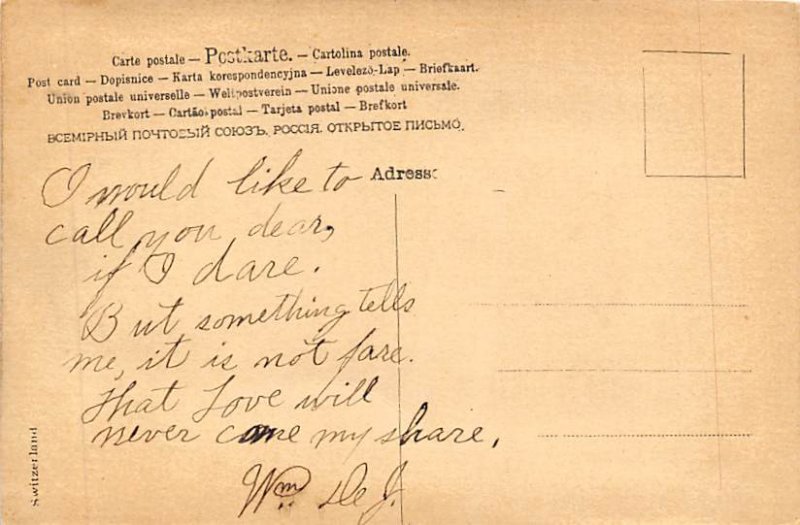 Carte postale — Postkarte. — Cartolina postale.
Post card — Dopisnice — Karta korespondencyjna — Levelező-Lap — Briefkaart.
Union postale universelle — Weltpostverein — Unione postale universale.
Brevkort — Cartão postal — Tarjeta postal — Brefkort
ВСЕМІРНЫЙ ПОЧТОВЫЙ СОЮЗЪ. РОССІЯ. ОТКРЫТОЕ ПИСЬМО.
Adresse
I would like to
call you dear,
if I dare.
But something tells
me, it is not fare.
That Love will
never come my share.
Wm. De J.
Switzerland